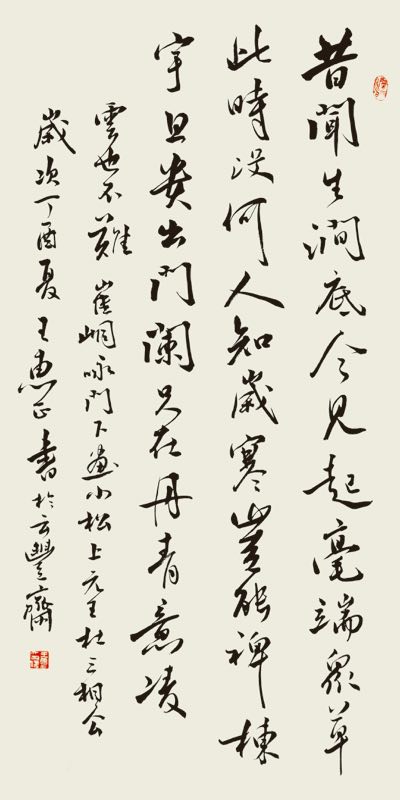 昔聞生澗底今見起毫端眾草
此時沒何人知歲寒豈能裨棟
宇且貴出門闌只在丹青意凌
雲也不難 崔峒咏門下畫小松上元王杜三相公
歲次丁酉夏王惠正書於云豐齋